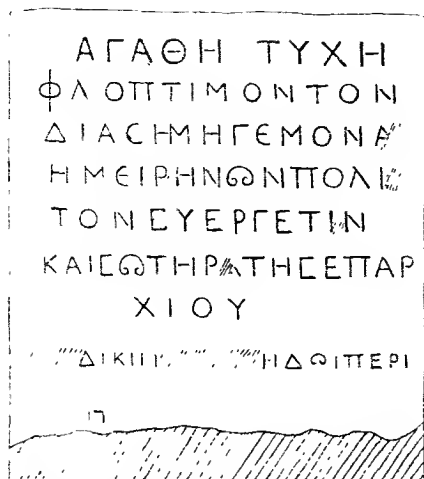 ΑΓΑΘΗ ΤΥΧΗ
ΦΛΟΠΤΙΜΟΝΤΟΝ
ΔΙΑCΗΜΗΓΕΜΟΝΑ
ΗΜΕΙΡΗΝΩΝΠΟΛΙ
ΤΟΝΕΥΕΡΓΕΤΙΝ
ΚΑΙCΩΤΗΡΑΤΗCΕΠΑΡ
ΧΙΟΥ
ΔΙΚΙ ΗΔΩΙΠΕΡΙ